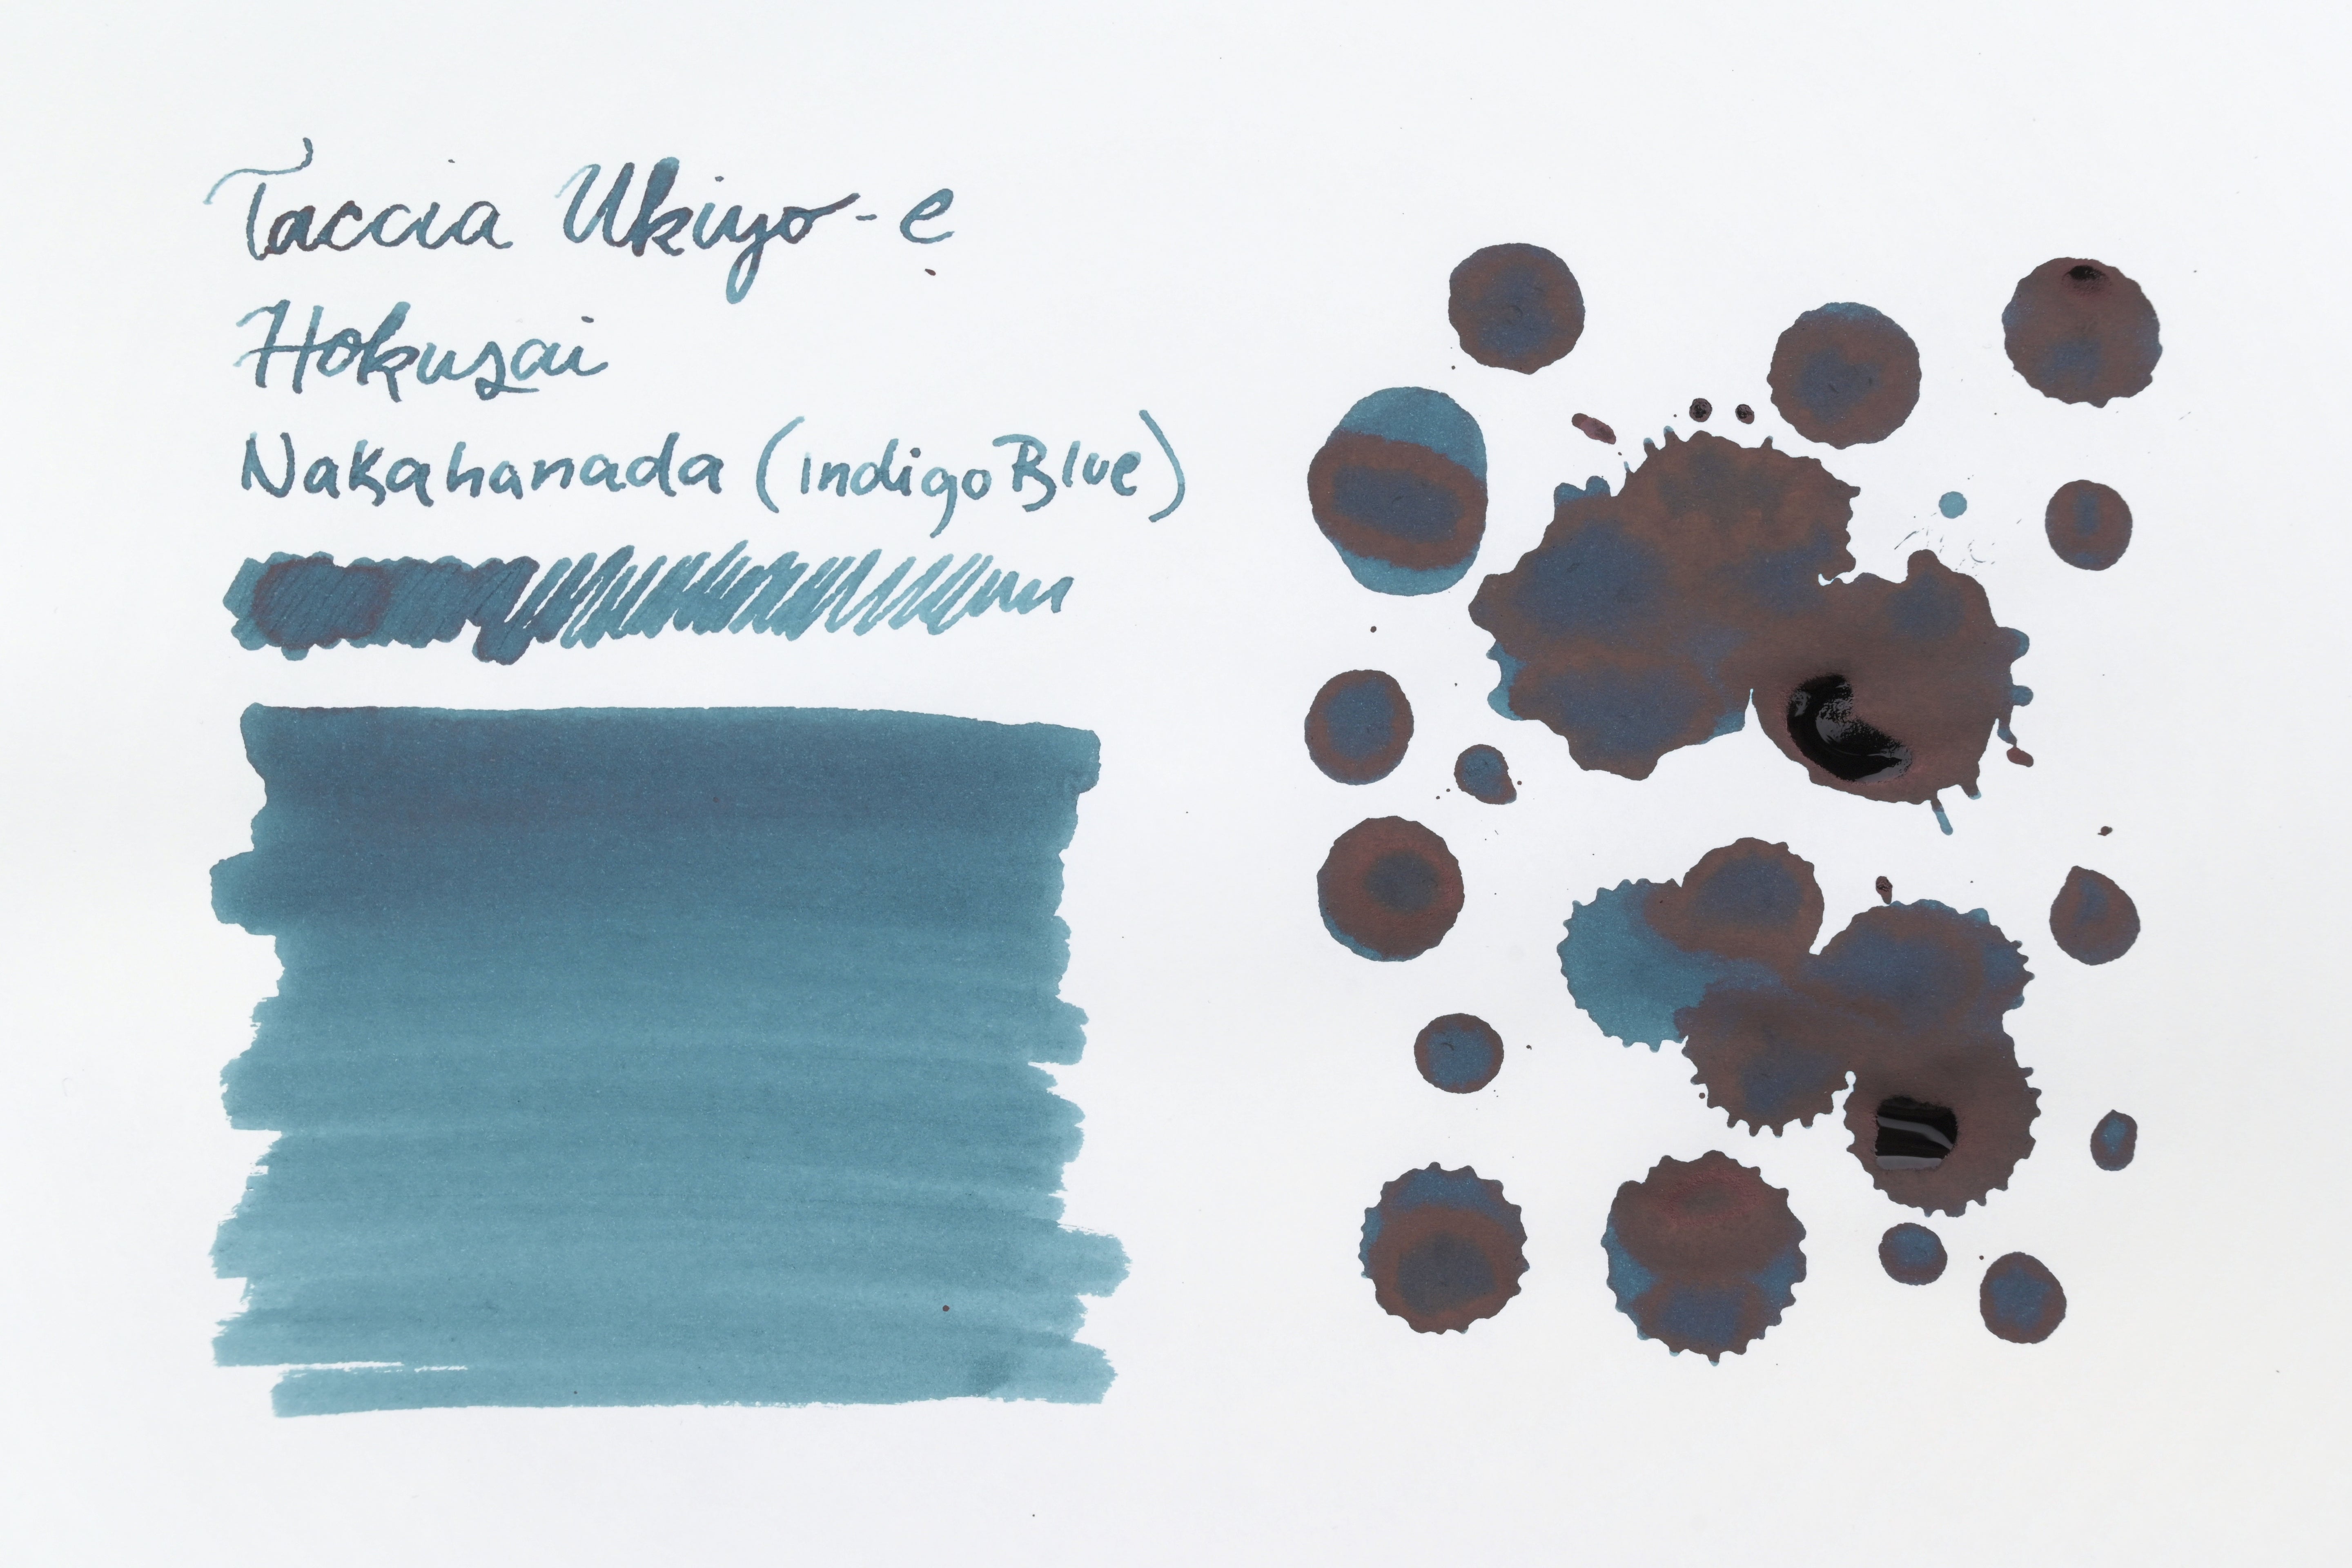 Taccia Ukiyo-e
Hokusai
Nakahanada (indigo Blue)